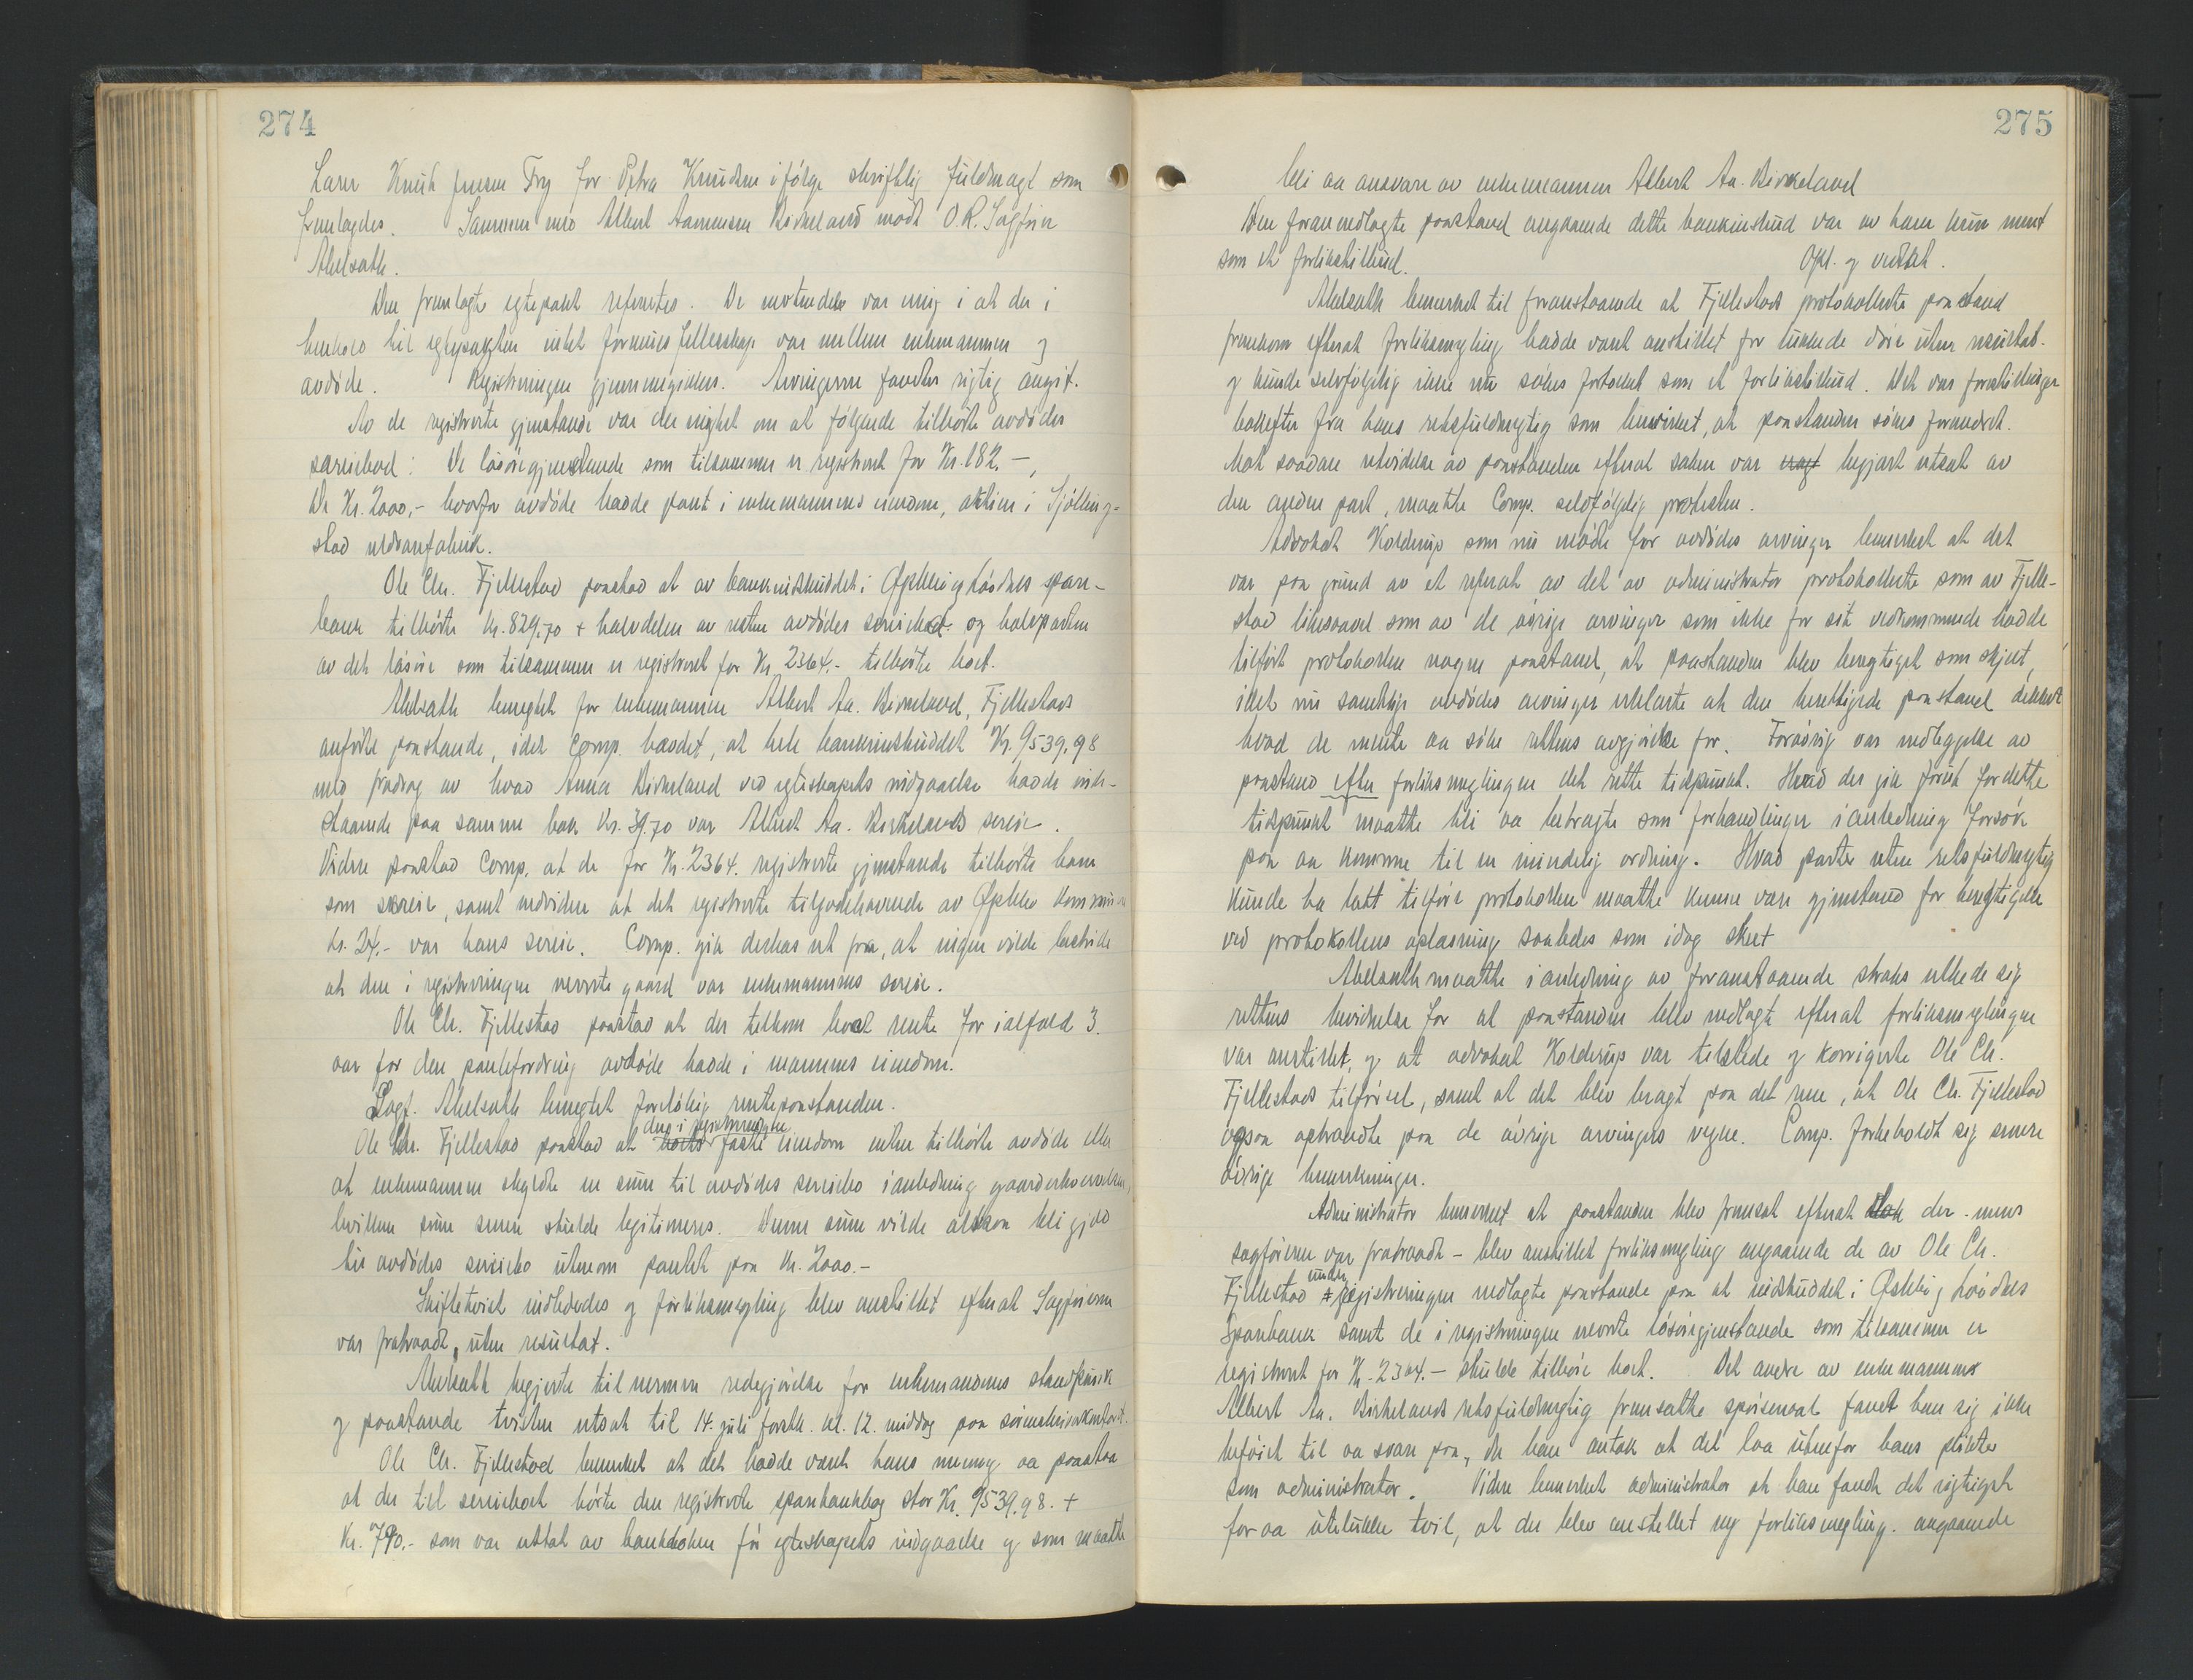 274
Lærer Knut Jensen Try for Petra Knudsen ifölge skriftlig fuldmagt som
fremlagdes. Sammen med Albert Aanensen Birkeland mödte O.R.Sagförer
Abelseth.
Den fremlagte egtepakt refertes. De mötende var enig i at der i
henhold til egtepakten intet formues fellesskap var mellem enkemannen og
avdöde. Registreringen gjennemgikkes. Arvingerne fandtes rigtig angit.
Av de registrerte gjenstande var der enighet om at følgende tilhörte avdödes
særeiebod: De lösöregjenstande som tilsammen er registrert for Kr. 182.-,
De Kr. 2000,- hvorfor avdöde hadde pant i enkemannens eiendom, aktien i Fjölling-
stad uldvarefabrik.
Ole Chr. Fjellestad paastod at av bankinskuddet i Øplevig høödnes spare-
bank tilhörte Kr. 829.70 + halvdelen av resten avdödes særeiebod og halvparten
av det lösöre som tilsammen er registreret for Kr. 2364.- tilhörte boet.
Abelseth benegtet for enkemannen Albert Aa. Birkeland, Fjellestads
anförte paastande, idet Comp. hævdet, at hele bankinskuddet Kr. 9539.98
med fradrag av hvad Anna Birkeland ved egteskapets indgaaelse hadde inde-
staaende paa samme bok Kr. 39.70 var Albert Aa. Birkelands sereie.
Videre paastod Comp. at de for Kr. 2364. registrerte gjenstande tilhörte ham
som særeie, samt endvidere at det registrerte tilgodehavende av Øplev Kommune
Kr. 24.- var hans sereie. Comp. gik derhos ut fra, at ingen vilde bestride
at den i registreringen nevnte gaard var enkemannens sereie.
Ole Ch. Fjellestad paastod at der tilkom boet rente for ialfald 3.
aar for den pantefordring avdöde hadde i mannens eiendom.
Sagf. Abelseth benegtet forelöbig rentepaastanden.
Ole Chr. Fjellestad paastod at den i registreringen faste eiendom enten tilhörte avdöde eller
at enkemannen skyldte en sum til avdödes sereiebo i anledning gaarderhvervelsen,
hvilken sum senere skulde legitimeres. Denne sum vilde altsaa bli gjeld
til avdödes sereiebo utenom pantet paa Kr. 2000.-
Skiftetvist indlededes og forliksmegling blev anstillet efterat Sagförerne
var fratraadt, uten resultat.
Abelseth begjerte til nermere redegjörelse for enkemandens standpunkt
og paastande tvisten utsat til 14. juli förstk. kl. 12. middag paa sorenskriverkontoret.
Ole Ch. Fjellestad bemerket at det hadde vært hans mening aa paastaa
at der til sereieboet hörte den registrerte sparebankbog stor Kr. 9539.98. +
Kr. 790.- som var uttat av bankboken för egteskapets indgaaelse og som maatte
275
bli aa ansvare av enkemannen Albert Aa. Birkeland
Den foran nedlagte paastand angaaende dette bankinskud var av ham kun ment
som et forlikstilbud. Opl. og vedtat.
Abelseth bemerket til foranstaaende at Fjellestads protokollerte paastand
fremkom efterat forliksmegling hadde vært anstillet for lukkede döre uten resultat.
og kunde selvfölgelig ikke nu sökes fortolket som et forlikstilbud. Det var forestillinger
bakefter fra hans retsfuldmegtig som bevirket, at paastanden sökes forandret.
Mot saadan utvidelse av paastanden efterat saken var begjært utsat av
den anden part, maatte Comp. selvfölgelig protestere.
Advokat Kolderup som nu mödte for avdödes arvinger bemerket at det
var paa grund av et referat av det av administrator protokollerte som av Fjelle-
stad likesaavel som av de övrige arvinger som ikke for sit vedkommende hadde
tilfört protokollen nogen paastand, at paastanden blev berigtiget som skjeet,
idet nu samtlige avdödes arvinger erklærte at den berettigede paastand dekket
hvad de mente aa söke rettens avgjörelse for. Forövrig var nedleggelse av
paastand efter forliksmeglingen det rette tidspunkt. Hvad der gik forut for dette
tidspunkt maatte bli aa betragte som forhandlinger i anledning forsök
paa aa komme til en mindelig ordning. Hvad parter uten retsfuldmegtig
kunde ha latt tilföre protokollen maatte kunne være gjenstand for berigtigelse
ved protokollens oplæsning saaledes som idag skeet
Abelseth maatte i anledning av foranstaaende straks utbede sig
rettens bevidnelse for at paastanden blev nedlagt efterat forliksmeglingen
var anstillet, og at advokat Kolderup var tilstede og korrigerte Ole Ch.
Fjellestads tilförsel, samt at det blev bragt paa det rene, at Ole Ch. Fjellestad
ogsaa optraadte paa de övrige arvingers vegne. Comp. forbeholdt sig senere
övrige bemerkninger.
Administrator bemerket at paastanden blev fremsat efterat der - mens
sagförerne var fratraadt - blev anstillet forliksmegling angaaende de av Ole Ch.
Fjellestad under registreringen nedlagte paastande paa at indskuddet i Øplevig höödnes
Sparebank samt de i registreringen nevnte lösöregjenstande som tilsammen er
registrert for Kr. 2364.- skulde tilhöre boet. Det andre av enkemannens
Albert Aa. Birkelands retsfuldmegtig fremsatte spörsmaal fandt han sig ikke
beföiet til aa svare paa, da han antok at det laa utenfor hans plikter
som administrator. Videre bemerket administrator at han fandt det rigtigst
for aa utelukke tvil, at der blev anstellet ny forliksmegling. angaaende